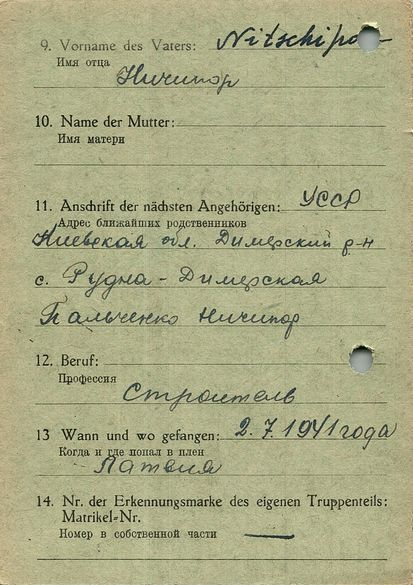 9. Vorname des Vaters: Nitschipo
Имя отца
Ничипор
10. Name der Mutter:
Имя матери
11. Anschrift der nächsten Angehörigen: УССР
Адрес ближайших родственников
Киевская обл. Димерский р-н
с. Рудна-Димерская
Пальченко Ничипор
12. Beruf:
Профессия
Строитель
13 Wann und wo gefangen: 2.7.1941 года
Когда и где попал в плен
Латвия
14. Nr. der Erkennungsmarke des eigenen Truppenteils:
Matrikel-Nr.
Номер в собственной части —